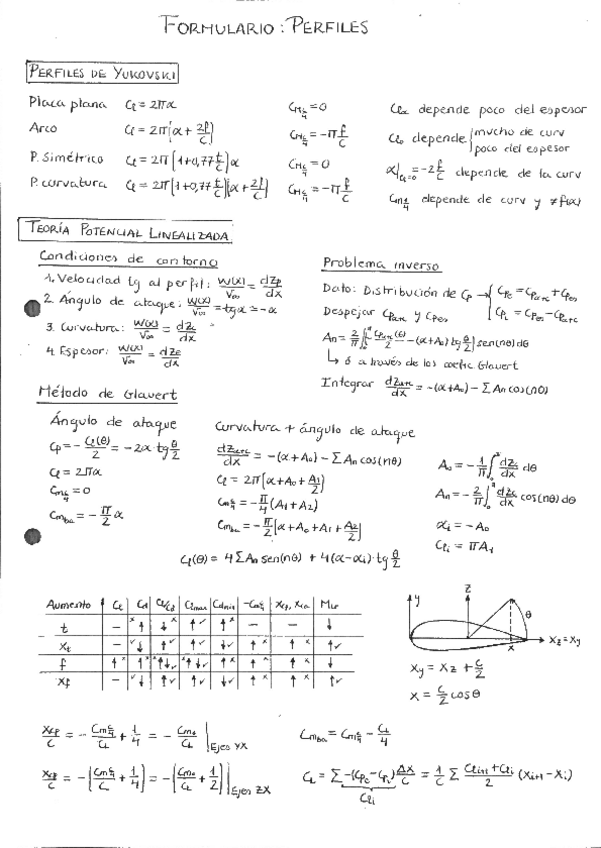 FORMULARIO: PERFILES
PERFILES DE YUKOVSKI
Placa plana Cl = 2πα CM c/4 = 0 Clα depende poco del espesor
Arco Cl = 2π(α + 2f/C) CM c/4 = -π f/C Cl0 depende mucho de curv poco del espesor
P. Simétrico Cl = 2π(1+0,77 t/C)α CM c/4 = 0 α|Cl=0 = -2 f/C depende de la curv
P. curvatura Cl = 2π(1+0,77 t/C)(α + 2f/C) CM c/4 = -π f/C Cm c/4 depende de curv y ≠f(α)
TEORÍA POTENCIAL LINEALIZADA
Condiciones de contorno
1. Velocidad tg al perfil: W(x)/V∞ = dZp/dx
2. Ángulo de ataque: W(x)/V∞ = -tgα ≈ -α
3. Curvatura: W(x)/V∞ = dZc/dx
4. Espesor: W(x)/V∞ = dZe/dx
Problema inverso
Dato: Distribución de Cp → Cpe = Cparc + Cpes
Cpi = Cpes - Cparc
Despejar Cparc y Cpes
↳ ó a través de los coefic. Glavert
Integrar dZarc/dx = -(α+A0) - ΣAn cos(nθ)
Método de Glavert
Ángulo de ataque
Cp = -Cl(θ)/2 = -2α·tg θ/2
Cl = 2πα
Cm c/4 = 0
Cmba = -π/2 α
Curvatura + ángulo de ataque
dZarc/dx = -(α+A0) - ΣAn cos(nθ)
Cl = 2π(α + A0 + A1/2)
Cm c/4 = -π/4 (A1+A2)
Cmba = -π/2 (α + A0 + A1 + A2/2)
A0 = -1/π ∫ dZc/dx dθ
An = -2/π ∫ dZc/dx cos(nθ)dθ
αi = -A0
Cli = πA1
Cl(θ) = 4ΣAn sen(nθ) + 4(α-αi)·tg θ/2
Aumento Cl Cd Clmax Cdmin
t
xt
f
xf
y
z
θ
x
xz = xy
xy = xz + C/2
x = C/2 cosθ
xcp/C = -Cm c/4/CL + 1/4 = -Cmo/CL | Ejes YX
Cmba = Cm c/4 - CL/4
xcp/C = -(Cm c/4/CL + 1/4) = -(Cmo/CL + 1/2) | Ejes ZX
CL = Σ -(Cpe - Cpi) Δx/C = 1/C Σ (Cli+1 + Cli)/2 (xi+1 - xi)
Cli